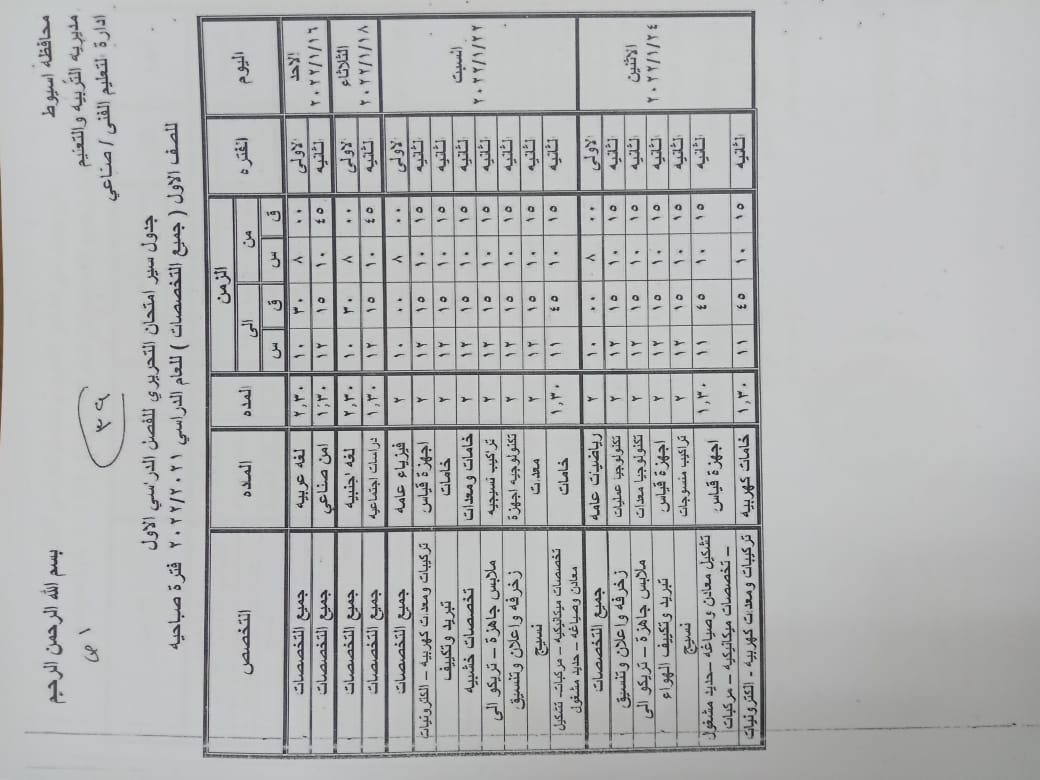 محافظة اسيوط
مديرية التربيه والتعليم
ادارة التعليم الفنى / صناعي
بسم الله الرحمن الرحيم
ص ١
٣٩
جدول سير امتحان التحريري للفصل الدراسي الاول
للصف الاول ( جميع التخصصات ) للعام الدراسي ٢٠٢٢/٢٠٢١ فترة صباحيه
اليوم الفتره الزمن المده الماده التخصص
من الى
س ق س ق
الاحد ٢٠٢٢/١/١٦ الاولى ٨ ٠٠ ١٠ ٣٠ ٢,٣٠ لغه عربيه جميع التخصصات
الثانيه ١٠ ٤٥ ١٢ ١٥ ١,٣٠ امن صناعي جميع التخصصات
الثلاثاء ٢٠٢٢/١/١٨ الاولى ٨ ٠٠ ١٠ ٣٠ ٢,٣٠ لغه اجنبيه جميع التخصصات
الثانيه ١٠ ٤٥ ١٢ ١٥ ١,٣٠ دراسات اجتماعيه جميع التخصصات
السبت ٢٠٢٢/١/٢٢ الاولى ٨ ٠٠ ١٠ ٠٠ ٢ فيزياء عامه جميع التخصصات
الثانيه ١٠ ١٥ ١٢ ١٥ ٢ اجهزة قياس تركيبات ومعدات كهربيه – الكترونيات
الثانيه ١٠ ١٥ ١٢ ١٥ ٢ خامات تبريد وتكييف
الثانيه ١٠ ١٥ ١٢ ١٥ ٢ خامات ومعدات تخصصات خشبيه
الثانيه ١٠ ١٥ ١٢ ١٥ ٢ تراكيب نسيجيه ملابس جاهزة – تريكو الى
الثانيه ١٠ ١٥ ١٢ ١٥ ٢ تكنولوجيه اجهزة زخرفه واعلان وتنسيق
الثانيه ١٠ ١٥ ١٢ ١٥ ٢ معدات نسيج
الثانيه ١٠ ١٥ ١١ ٤٥ ١,٣٠ خامات تخصصات ميكانيكيه – مركبات – تشكيل معادن وصياغه – حديد مشغول
الاثنين ٢٠٢٢/١/٢٤ الاولى ٨ ٠٠ ١٠ ٠٠ ٢ رياضيات عامه جميع التخصصات
الثانيه ١٠ ١٥ ١٢ ١٥ ٢ تكنولوجيا عمليات زخرفه واعلان وتنسيق
الثانيه ١٠ ١٥ ١٢ ١٥ ٢ تكنولوجيا معدات ملابس جاهزة – تريكو الى
الثانيه ١٠ ١٥ ١٢ ١٥ ٢ اجهزة قياس تبريد وتكييف الهواء
الثانيه ١٠ ١٥ ١٢ ١٥ ٢ تراكيب منسوجات نسيج
الثانيه ١٠ ١٥ ١١ ٤٥ ١,٣٠ اجهزة قياس تشكيل معادن وصياغه – حديد مشغول – تخصصات ميكانيكيه – مركبات
الثانيه ١٠ ١٥ ١١ ٤٥ ١,٣٠ خامات كهربيه تركيبات ومعدات كهربيه - الكترونيات